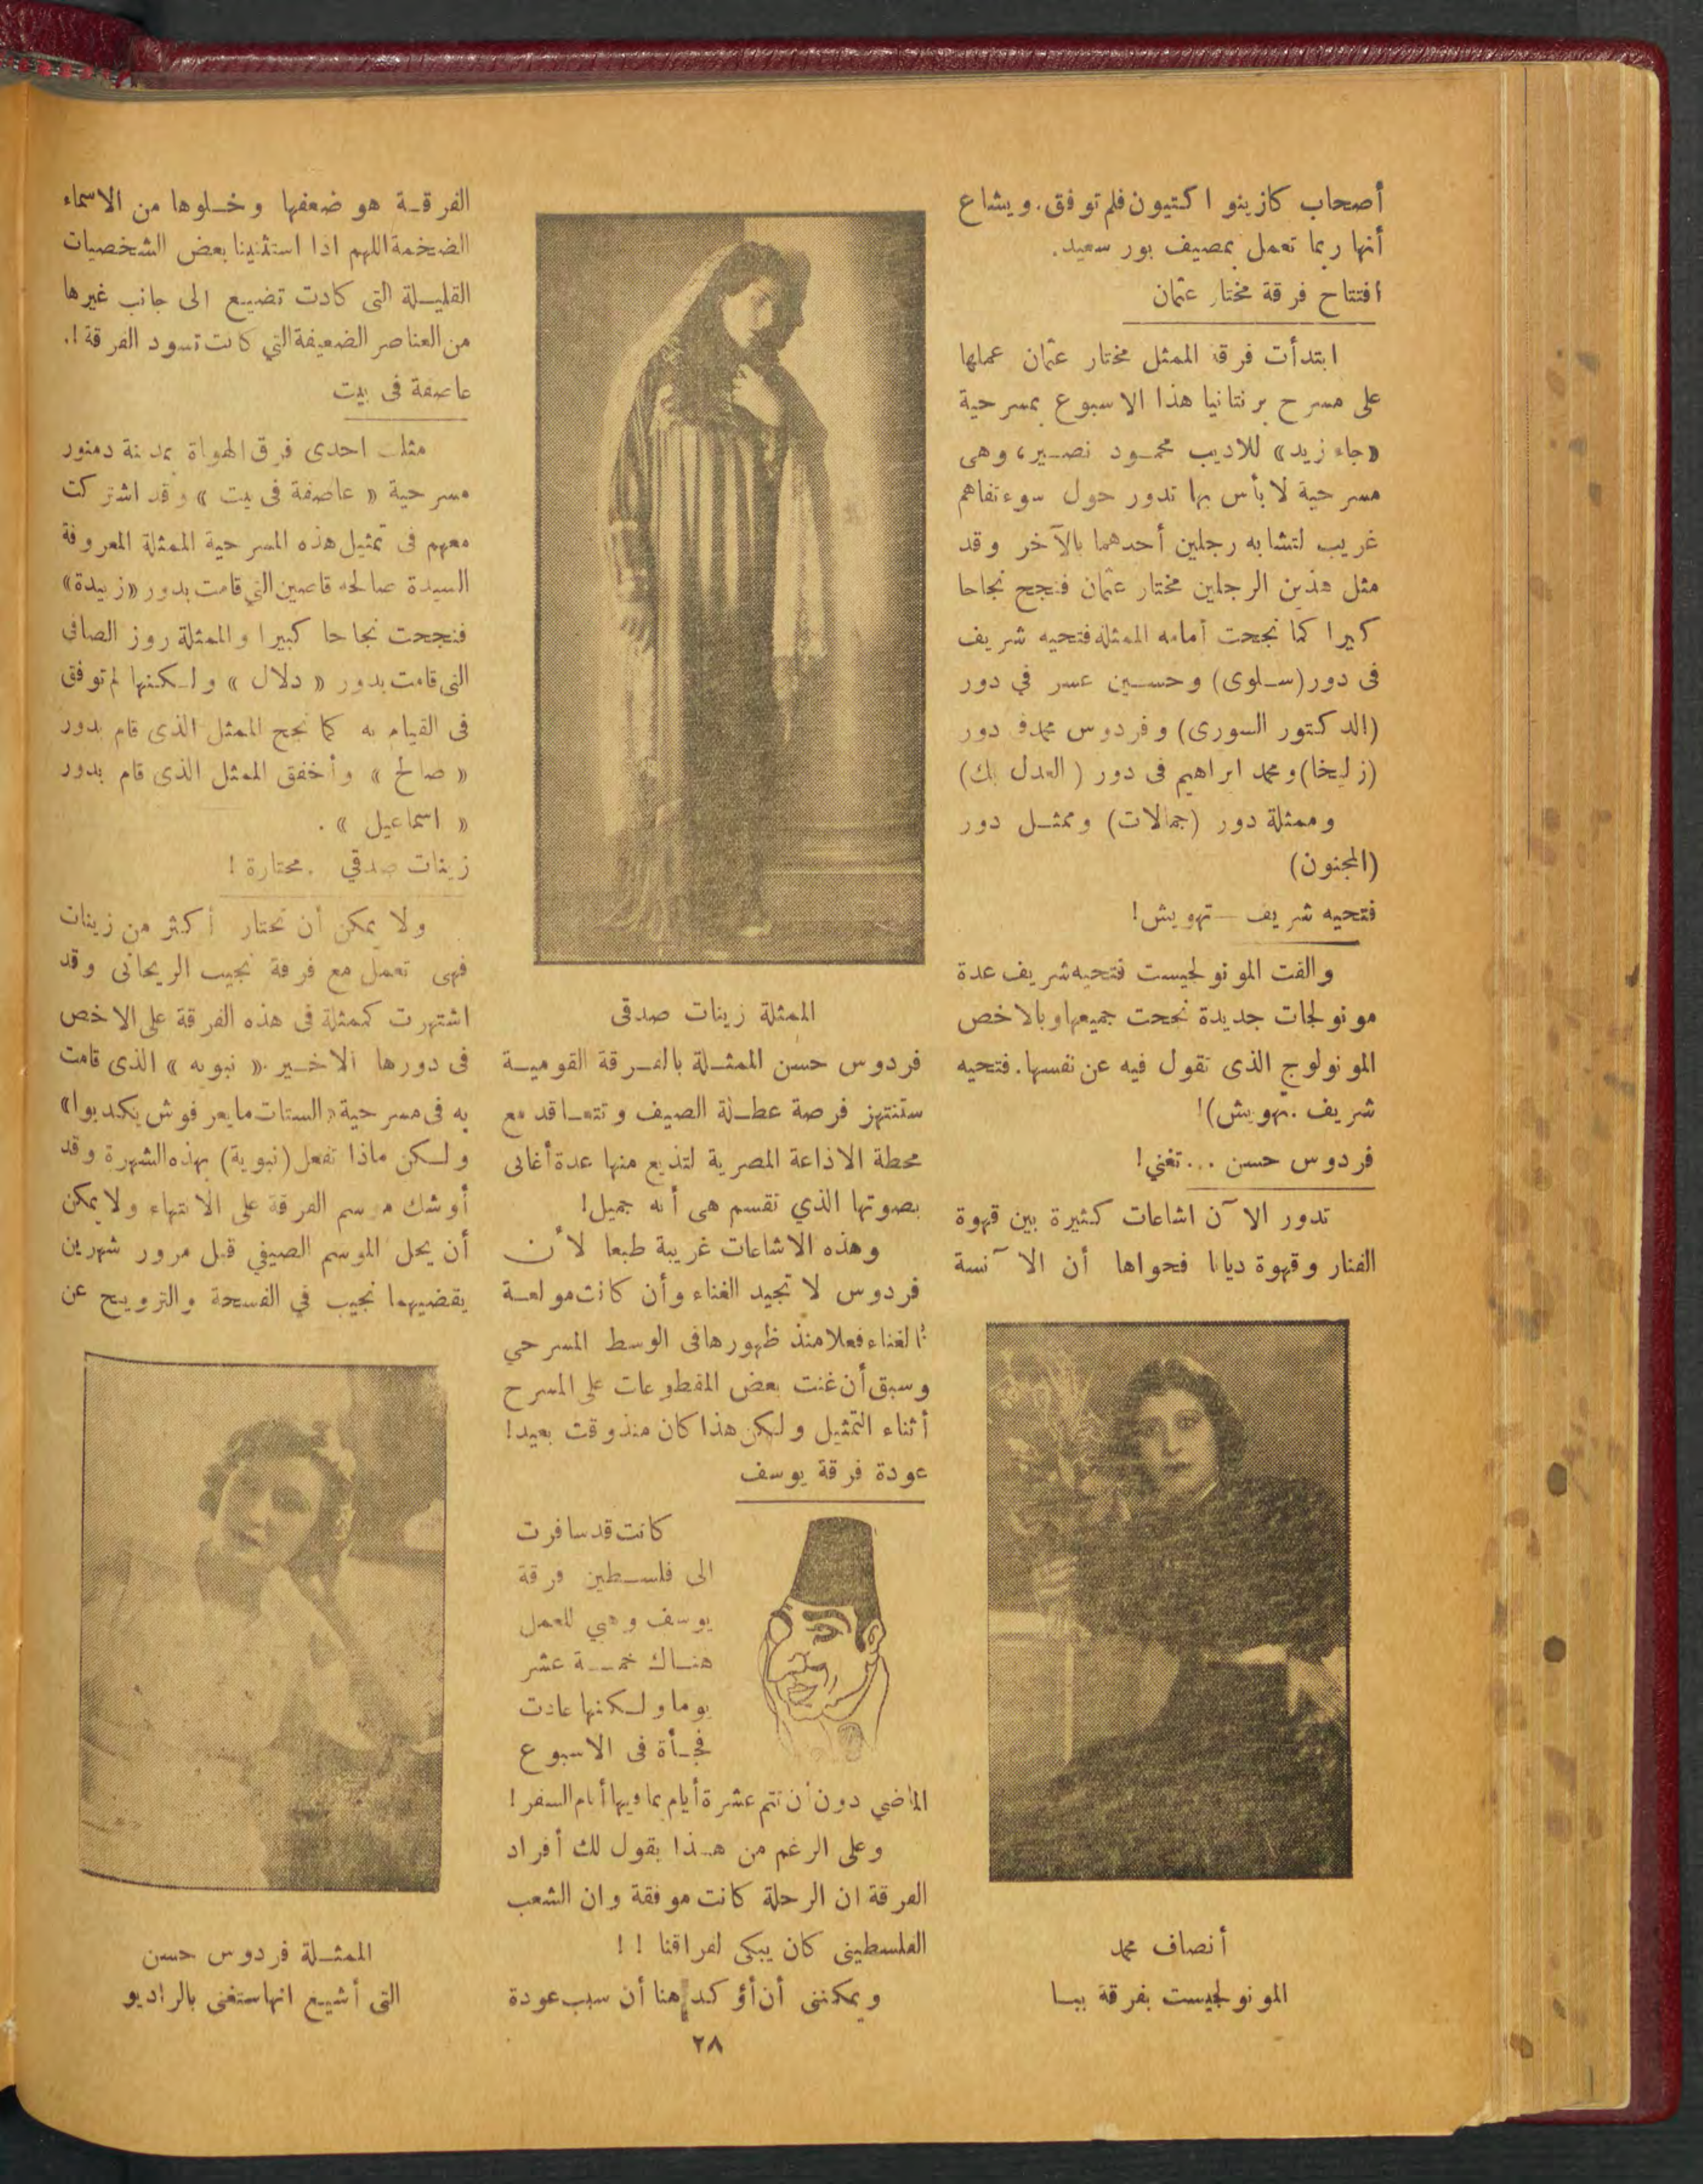 أصحاب كازينوا كتيون فلم توفق. ويشاع
أنها ربما تعمل بمصيف بور سعيد.
افتتاح فرقة مختار عثمان
ابتدأت فرقة الممثل مختار عثمان عملها
على مسرح برنتانيا هذا الاسبوع بمسرحية
«جاء زيد» للاديب محمود نصير، وهى
مسرحية لا بأس بها تدور حول سوء تفاهم
غريب لتشابه رجلين أحدهما بالآخر وقد
مثل هذين الرجلين مختار عثمان فنجح نجاحا
كبيرا كما نجحت أمامه الممثلة فتحيه شريف
فى دور (سلوى) وحسين عسر في دور
(الدكتور السورى) وفردوس محمد فى دور
(زليخا) ومحمد ابراهيم فى دور (العدل بك)
وممثلة دور (جمالات) وممثل دور
(المجنون)
فتحيه شريف — تهويش!
والفت المونولجيست فتحيه شريف عدة
مونولجات جديدة نجحت جميعها وبالاخص
المونولوج الذى تقول فيه عن نفسها. فتحيه
شريف. تهويش)!
فردوس حسن ... تغني!
تدور الآن اشاعات كثيرة بين قهوة
الفنار وقهوة ديانا فحواها أن الآنسة
أنصاف محمد
المونولجيست بفرقة ببا
الممثلة زينات صدقى
فردوس حسن الممثلة بالفرقة القومية
ستنتهز فرصة عطلة الصيف وتتعاقد مع
محطة الاذاعة المصرية لتذيع منها عدة أغانى
بصوتها الذي تقسم هى أنه جميل!
وهذه الاشاعات غريبة طبعا لأن
فردوس لا تجيد الغناء وأن كانت مولعة
بالغناء فعلا منذ ظهورها فى الوسط المسرحي
وسبق أن غنت بعض المقطوعات على المسرح
أثناء التمثيل ولكن هذا كان منذ وقت بعيد!
عودة فرقة يوسف
كانت قد سافرت
الى فلسطين فرقة
يوسف وهبي للعمل
هناك خمسة عشر
يوما ولكنها عادت
فجأة فى الاسبوع
الماضي دون أن تتم عشرة أيام بما فيها أيام السفر!
وعلى الرغم من هذا يقول لك أفراد
الفرقة ان الرحلة كانت موفقة وان الشعب
الفلسطينى كان يبكى لفراقنا ! !
ويمكننى أن أؤكد هنا أن سبب عودة
الفرقة هو ضعفها وخلوها من الاسماء
الضخمة اللهم اذا استثنينا بعض الشخصيات
القليلة التى كادت تضيع الى جانب غيرها
من العناصر الضعيفة التي كانت تسود الفرقة!.
عاصفة فى بيت
مثلت احدى فرق الهواة بمدينة دمنور
مسرحية « عاصفة فى بيت » وقد اشتركت
معهم فى تمثيل هذه المسرحية الممثلة المعروفة
السيدة صالحه قاصين التي قامت بدور «زبيدة»
فنجحت نجاحا كبيرا والممثلة روز الصافي
التى قامت بدور « دلال » ولكنها لم توفق
فى القيام به كما نجح الممثل الذى قام بدور
« صالح » وأخفق الممثل الذى قام بدور
« اسماعيل » .
زينات صدقي . محتارة !
ولا يمكن أن تحتار أكثر من زينات
فهى تعمل مع فرقة نجيب الريحانى وقد
اشتهرت كممثلة فى هذه الفرقة على الاخص
فى دورها الاخير « نبويه » الذى قامت
به فى مسرحية «الستات ما يعرفوش يكدبوا»
ولكن ماذا تفعل (نبوية) بهذه الشهرة وقد
أوشك موسم الفرقة على الانتهاء ولا يمكن
أن يحل الموسم الصيفي قبل مرور شهرين
يقضيهما نجيب في الفسحة والترويح عن
الممثلة فردوس حسن
التى أشيع انها ستغنى بالراديو
٢٨